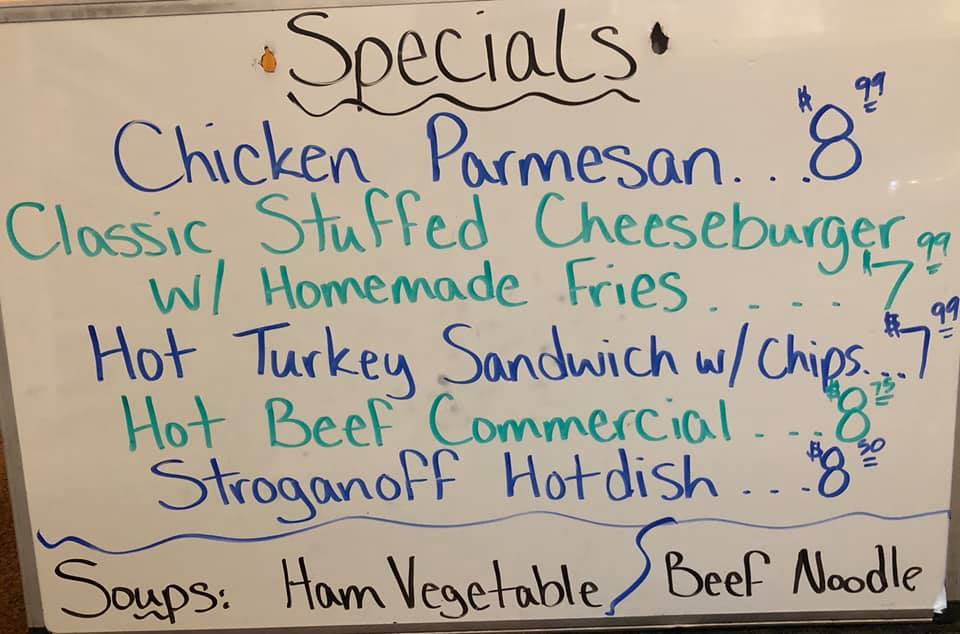 Specials
Chicken Parmesan...$8.99
Classic Stuffed Cheeseburger
w/ Homemade Fries.... $7.99
Hot Turkey Sandwich w/ Chips...$7.99
Hot Beef Commercial...$8.75
Stroganoff Hotdish...$8.50
Soups: Ham Vegetable / Beef Noodle